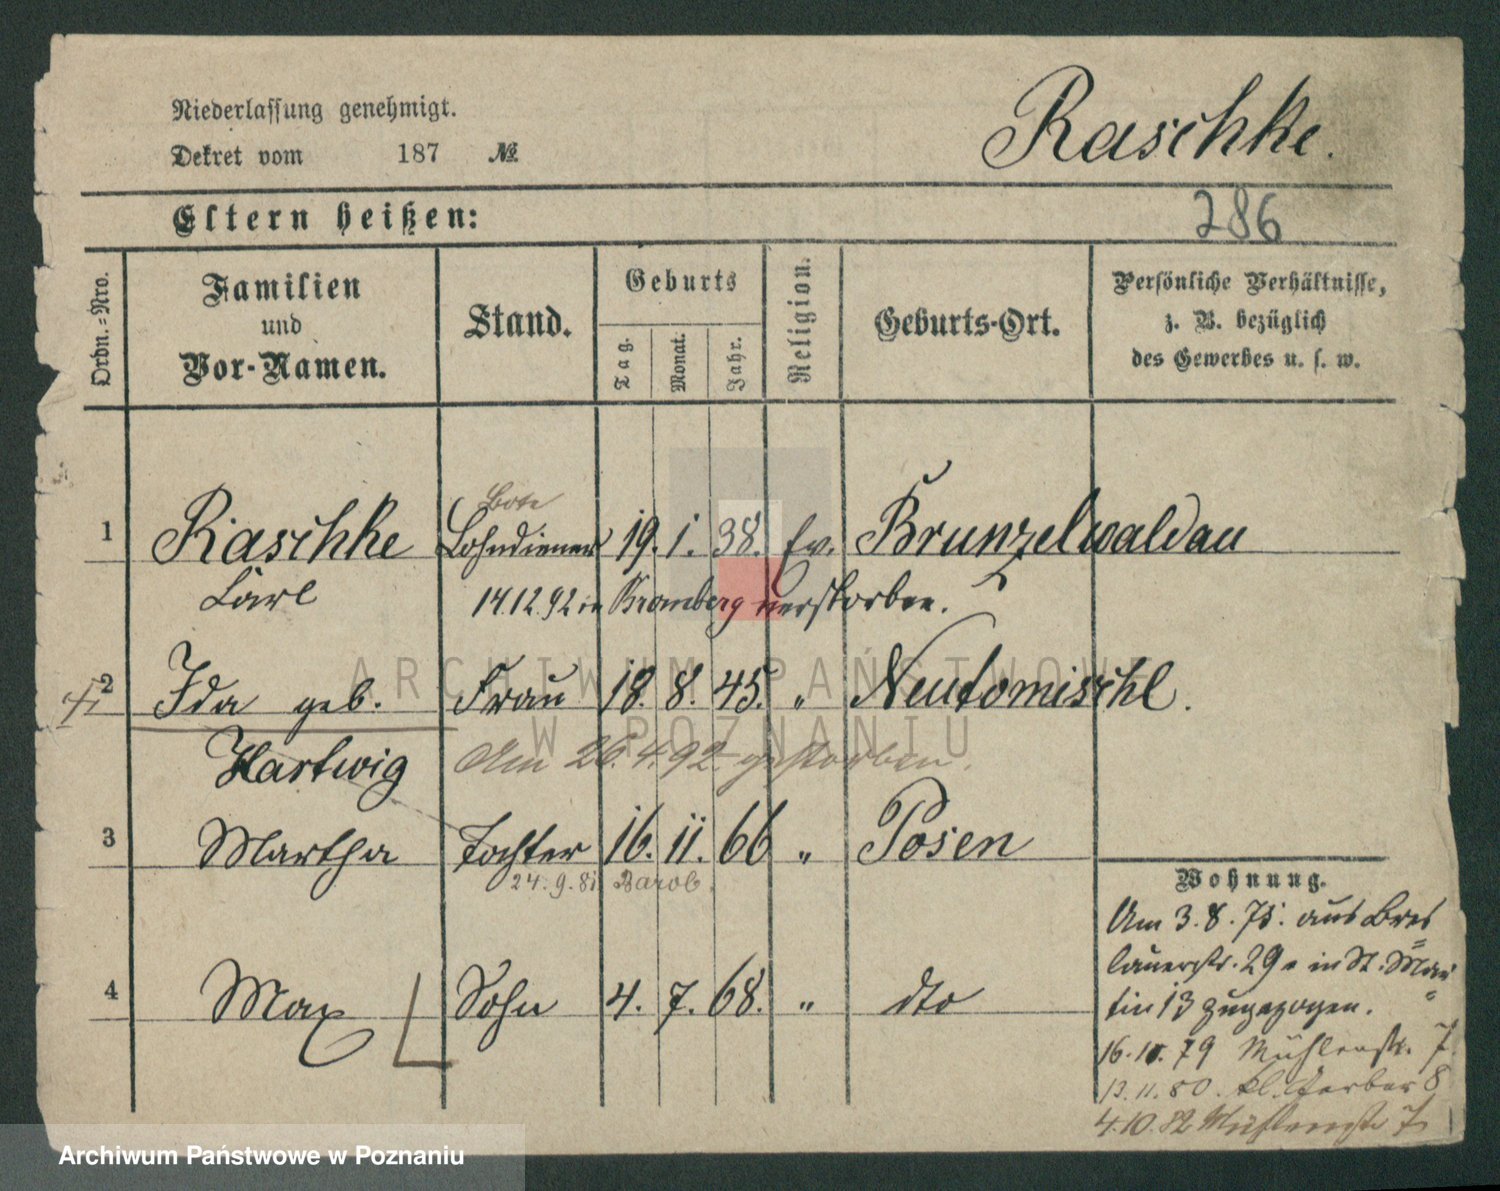 Niederlassung genehmigt.
Raschke.
Dekret vom 187 №
Eltern heißen:
286
Ordn.-Nro.
Familien
und
Vor-Namen.
Stand.
Geburts
Tag.
Monat.
Jahr.
Religion.
Geburts-Ort.
Persönliche Verhältnisse,
z. B. bezüglich
des Gewerbes u. s. w.
Bote
1 Raschke Lohndiener 19. 1. 38. Ev. Brunzelwaldau
Carl 14.12.92 in Bromberg verstorben.
2 Ida geb. Frau 18. 8. 45. " Neutomischl.
Hartwig Am 26.4.92. gestorben.
3 Martha Tochter 16. 11. 66 " Posen
24.9.81
Wohnung.
Am 3.8.75. aus Bres
lauerstr. 29 in St. Mar
tin 13 zugezogen.
4 Max Sohn 4. 7. 68. " dto
16.10.79 Mühlenstr. 7
13.11.80. kl. Gerber 8
4.10.82 Mühlenstr 7
ARCHIWUM PAŃSTWOWE
W POZNANIU
Archiwum Państwowe w Poznaniu